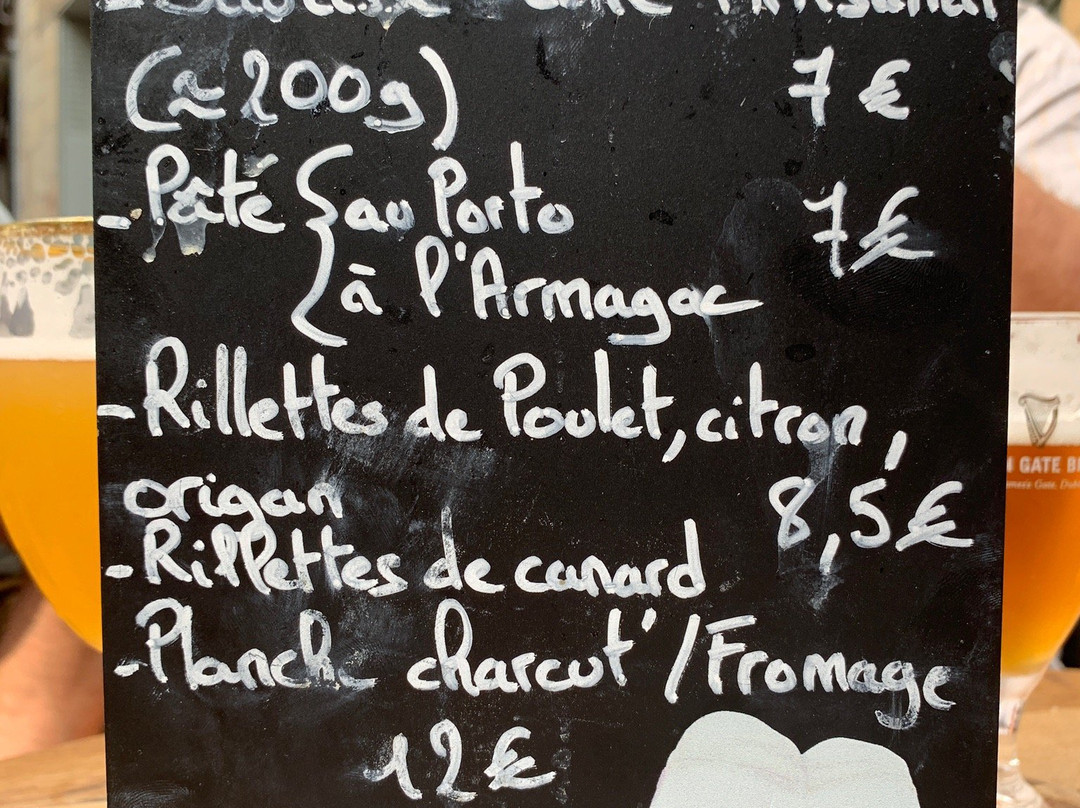 Artisanal
(≈200g) 7 €
- Pâté { au Porto 7€
à l'Armagac
- Rillettes de Poulet, citron,
origan 8,5€
- Rillettes de canard
- Planche charcut'/Fromage
12€
GATE